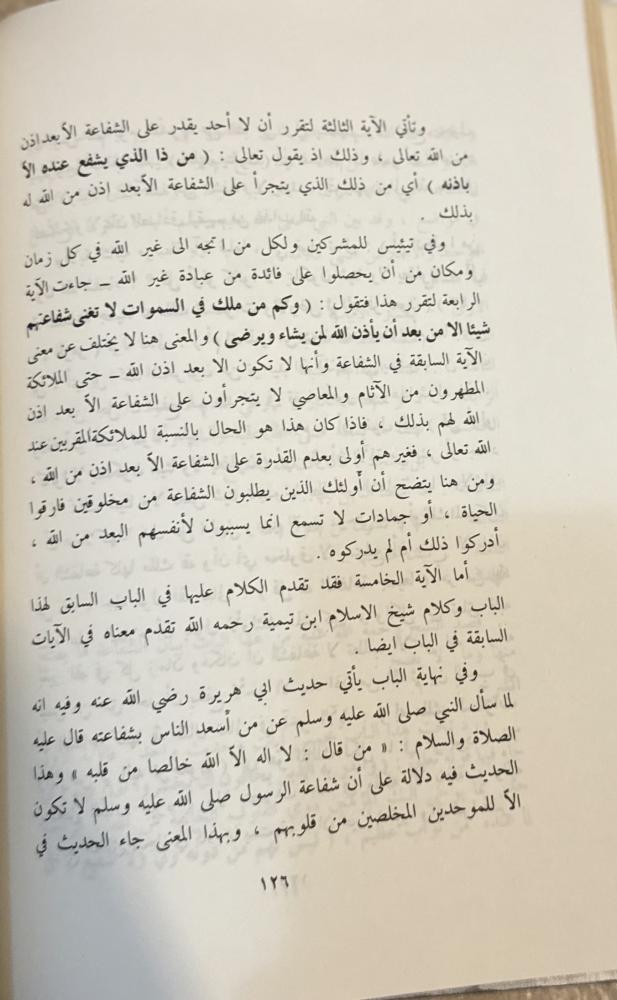 وتأتي الآية الثالثة لتقرر أن لا أحد يقدر على الشفاعة الاّ بعد اذن
من الله تعالى ، وذلك اذ يقول تعالى : ( من ذا الذي يشفع عنده الاّ
باذنه ) أي من ذلك الذي يتجرأ على الشفاعة الاّ بعد اذن من الله له
بذلك .
وفي تيئيس للمشركين ولكل من اتجه الى غير الله في كل زمان
ومكان من أن يحصلوا على فائدة من عبادة غير الله ــ جاءت الآية
الرابعة لتقرر هذا فتقول : ( وكم من ملك في السموات لا تغنى شفاعتهم
شيئا الا من بعد أن يأذن الله لمن يشاء ويرضى ) والمعنى هنا لا يختلف عن معنى
الآية السابقة في الشفاعة وأنها لا تكون الا بعد اذن الله ــ حتى الملائكة
المطهرون من الآثام والمعاصي لا يتجرأون على الشفاعة الاّ بعد اذن
الله لهم بذلك ، فاذا كان هذا هو الحال بالنسبة للملائكة المقربين عند
الله تعالى ، فغيرهم أولى بعدم القدرة على الشفاعة الاّ بعد اذن من الله ،
ومن هنا يتضح أن أولئك الذين يطلبون الشفاعة من مخلوقين فارقوا
الحياة ، أو جمادات لا تسمع انما يسببون لأنفسهم البعد من الله ،
أدركوا ذلك أم لم يدركوه .
أما الآية الخامسة فقد تقدم الكلام عليها في الباب السابق لهذا
الباب وكلام شيخ الاسلام ابن تيمية رحمه الله تقدم معناه في الآيات
السابقة في الباب ايضا .
وفي نهاية الباب يأتي حديث ابي هريرة رضي الله عنه وفيه انه
لما سأل النبي صلى الله عليه وسلم عن من أسعد الناس بشفاعته قال عليه
الصلاة والسلام : « من قال : لا اله الاّ الله خالصا من قلبه » وهذا
الحديث فيه دلالة على أن شفاعة الرسول صلى الله عليه وسلم لا تكون
الاّ للموحدين المخلصين من قلوبهم ، وبهذا المعنى جاء الحديث في
١٢٦